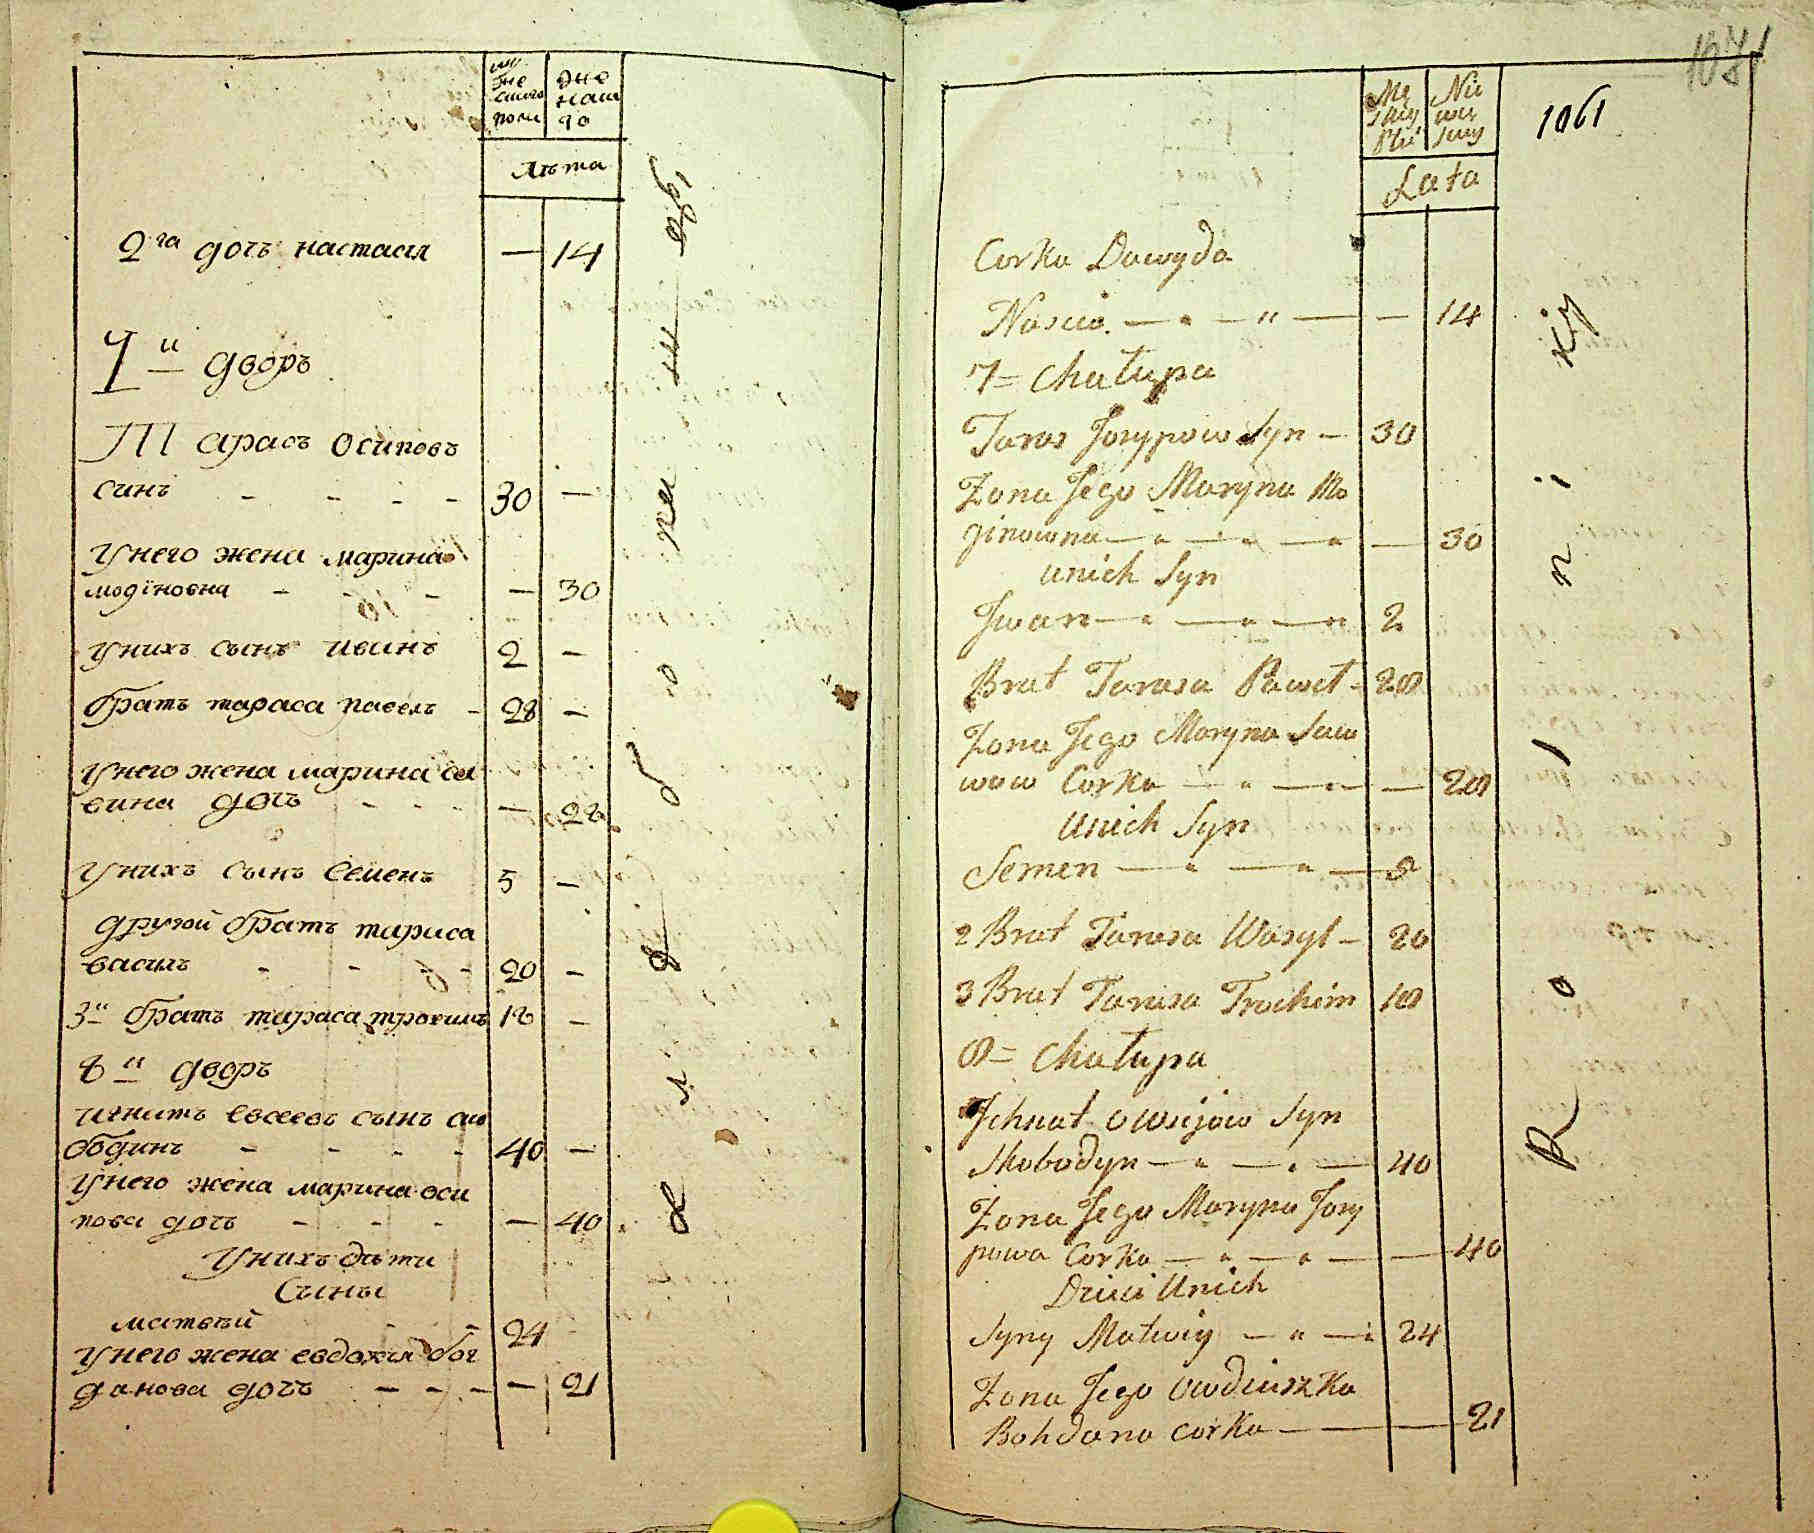 лѣта
2га дочь настасия — 14
7й дворъ
Тарасъ Осиповъ
синъ - - - - 30 —
У него жена марина
модіновна - - — 30
У нихъ сынъ иванъ 2 —
братъ тараса павелъ - 28 —
У него жена марина са
вина дочь - - - — 28
У нихъ сынъ семенъ 5 —
другой братъ тараса
василь - - - - 20 —
3й братъ тараса трохимъ 18 —
8й дворъ
игнатъ евсеевъ сынъ ско
бодинъ - - - - 40 —
У него жена марина оси
пова дочь - - - — 40
У нихъ дѣти
Сыны
матвѣй - - 24
У него жена евдокия бог
данова дочь - - - — 21
1071
1061
Męż
Lata
Corka Dawyda
Nascia — " — " — — 14
7= Chałupa
Taras Josypow Syn — 30
Żona Jego Maryna Mo
dinowna — " — " — " — 30
Unich Syn
Jwan — " — " — " 2
Brat Tarasa Paweł - 28
Żona Jego Maryna Saw
wow Corka — " — " — 28
Unich Syn
Semen — " — " —
2 Brat Tarasa Wasyl — 20
3 Brat Tarasa Trochim 18
8= Chałupa
Jchnat Owsijow Syn
Skobodyn — " — " — 40
Żona Jego Maryna Josy
powa Corka — " — " — — 40
Dzieci Unich
Syny Matwiy — " — " 24
Żona Jego Owdiuszka
Bohdana corka — — 21
R o l n i cy